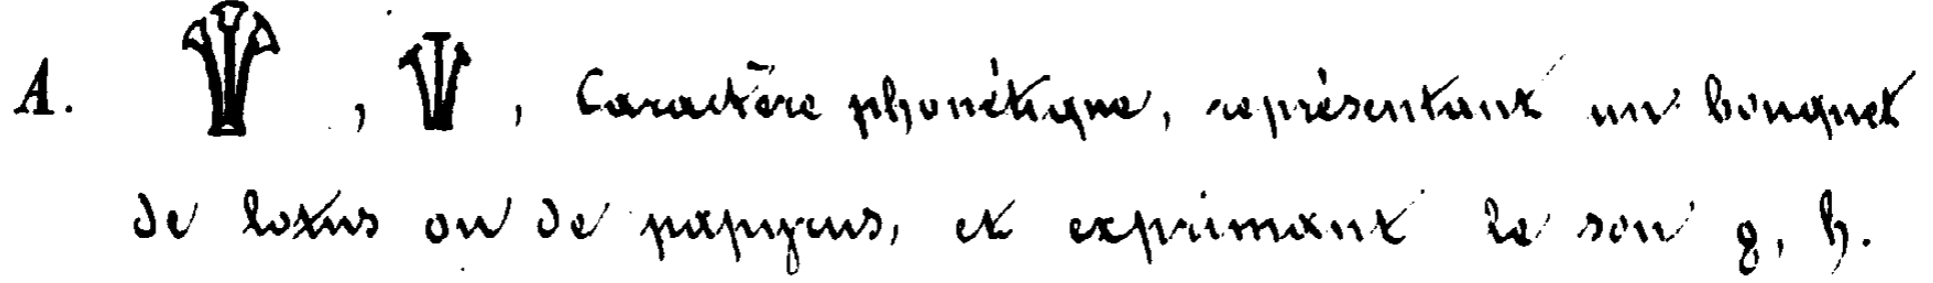 A. 𓇉, 𓇉, Caractère phonétique, représentant un bouquet
de lotus ou de papyrus, et exprimant le son ϩ, h.